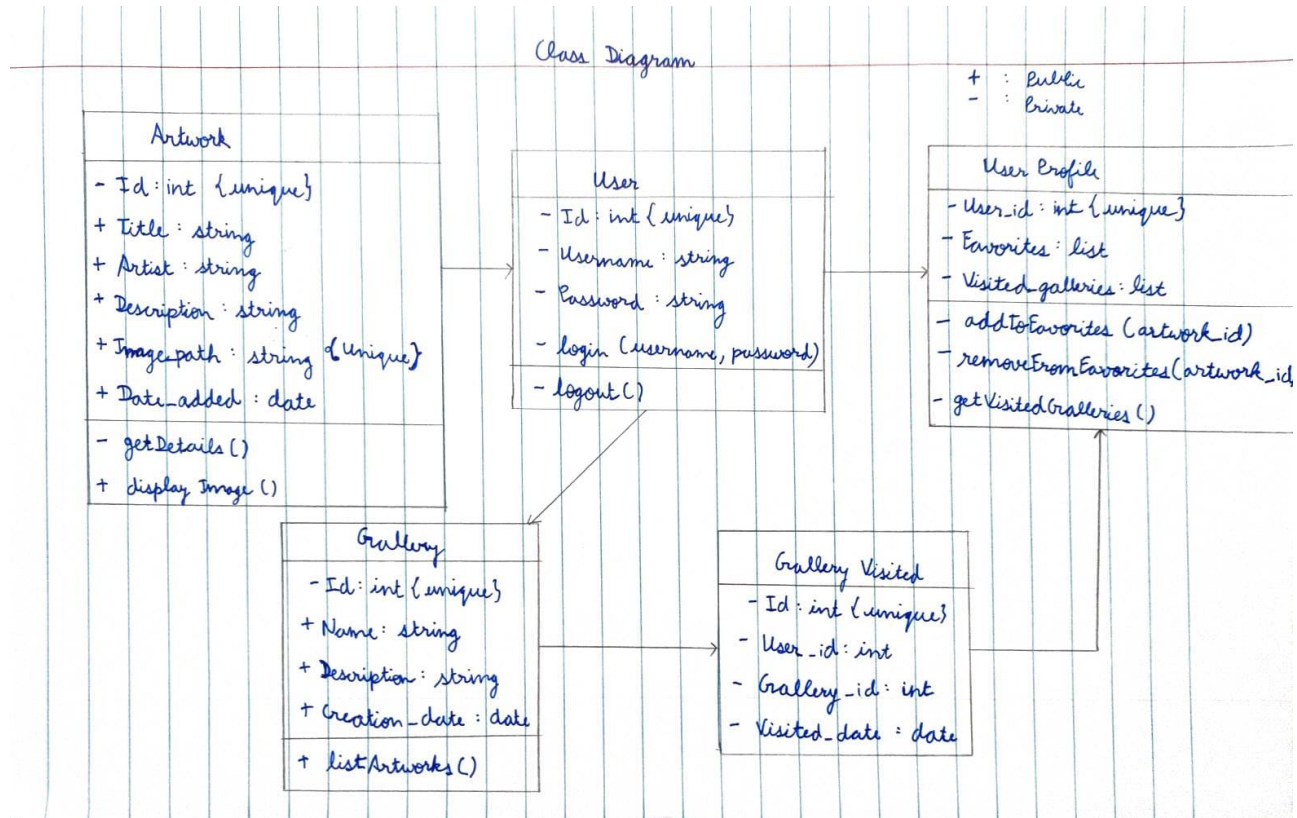 Class Diagram
+ : Public
- : Private
Artwork
- Id : int {unique}
+ Title : string
+ Artist : string
+ Description : string
+ Image_path : string {Unique}
+ Date_added : date
- getDetails()
+ display Image ()
User
- Id : int {unique}
- Username : string
- Password : string
- login (username, password)
- logout()
User Profile
- User_id : int {unique}
- Favorites : list
- Visited_galleries : list
- addToFavorites (artwork_id)
- removeFromFavorites(artwork_id)
- getVisitedGalleries ()
Gallery
- Id : int {unique}
+ Name : string
+ Description : string
+ Creation_date : date
+ listArtworks()
Gallery Visited
- Id : int {unique}
- User_id : int
- Gallery_id : int
- Visited_date : date